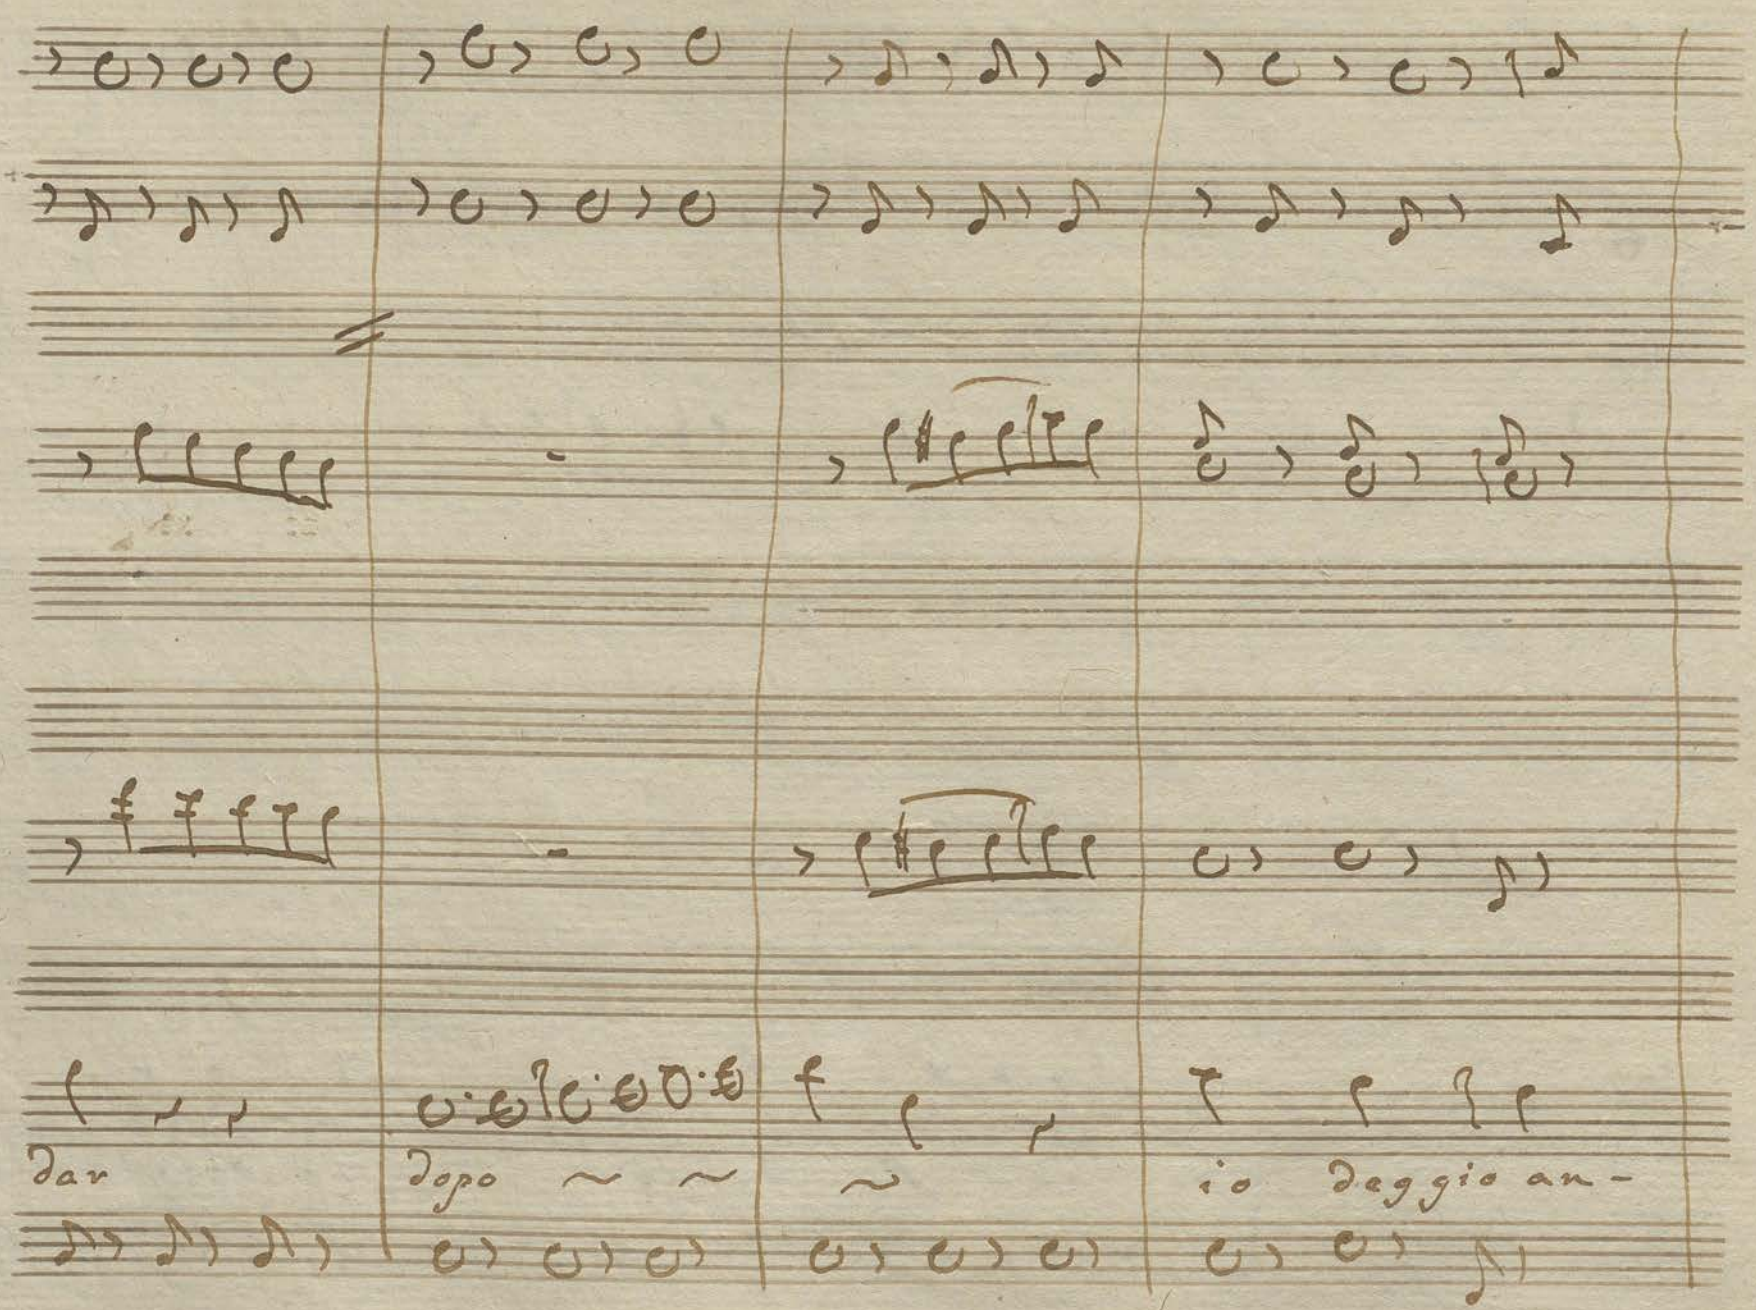 dar dopo ~ ~ ~ io deggio an-